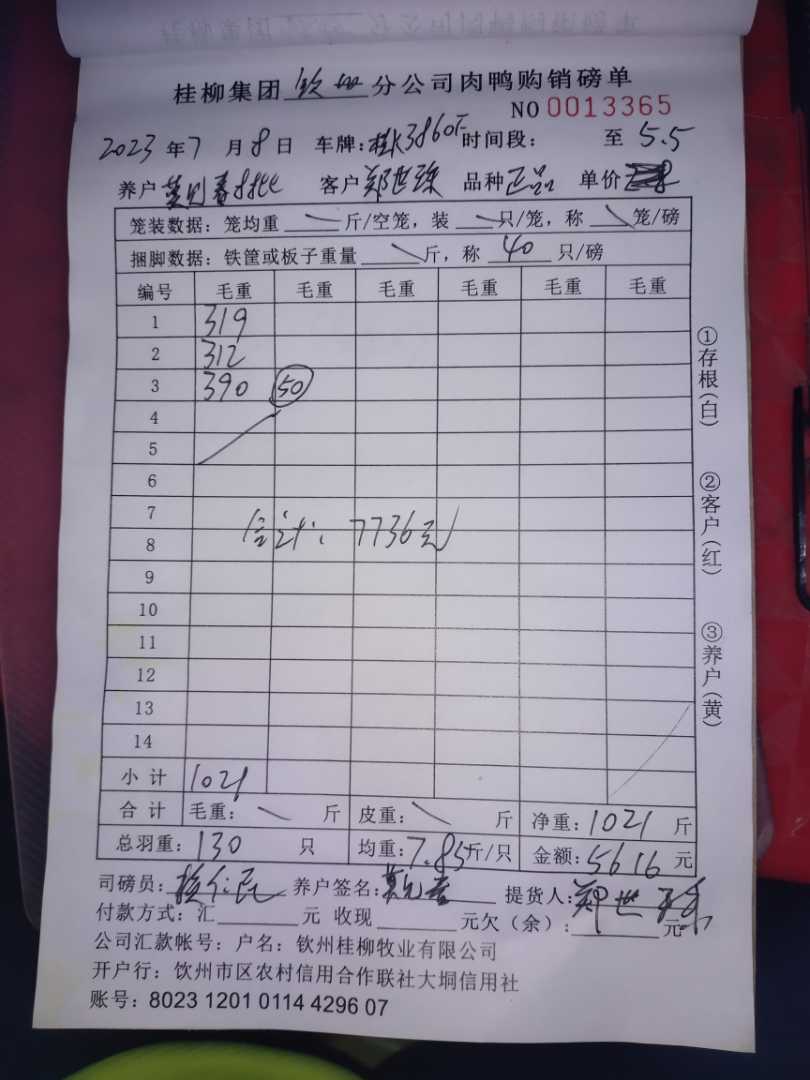 桂柳集团 钦州 分公司肉鸭购销磅单
NO 0013365
2023 年 7 月 8 日 车牌: 3860 时间段: 至 5.5
养户 客户 郑世 品种 正品 单价
笼装数据: 笼均重 斤/空笼, 装 只/笼, 称 笼/磅
捆脚数据: 铁筐或板子重量 斤, 称 40 只/磅
编号 毛重 毛重 毛重 毛重 毛重 毛重
1 319
2 312
3 390 50
4
5
6
7
合计: 7736元
8
9
10
11
12
13
14
小 计 1021
合 计 毛重: 斤 皮重: 斤 净重: 1021 斤
总羽重: 130 只 均重: 7.85 斤/只 金额: 5616 元
司磅员: 养户签名: 提货人: 郑世
付款方式: 汇 元 收现 元欠(余): 元
公司汇款帐号: 户名: 钦州桂柳牧业有限公司
开户行: 饮州市区农村信用合作联社大垌信用社
账号: 8023 1201 0114 4296 07
①存根(白)
②客户(红)
③养户(黄)